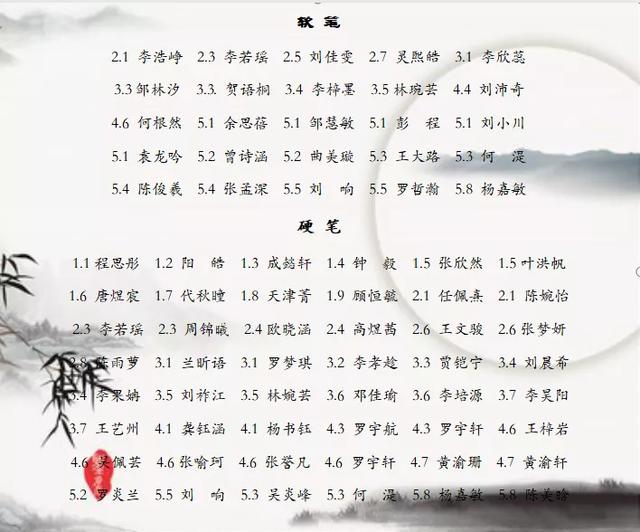 软笔
2.1 李浩峥 2.3 李若瑶 2.5 刘佳雯 2.7 吴熙皓 3.1 李欣蕊
3.3邹林汐 3.3. 贺语桐 3.4 李梓墨 3.5 林琬芸 4.4 刘沛奇
4.6 何根然 5.1 余思蓓 5.1 邹慧敏 5.1 彭 程 5.1 刘小川
5.1 袁龙吟 5.2 曾诗涵 5.2 曲美璇 5.3 王大路 5.3 何 湜
5.4 陈俊羲 5.4 张孟深 5.5 刘 响 5.5 罗哲瀚 5.8 杨嘉敏
硬笔
1.1 程思彤 1.2 阳 皓 1.3 成懿轩 1.4 钟 毅 1.5 张欣然 1.5 叶洪帆
1.6 唐煜宸 1.7 代秋曈 1.8 天津菁 1.9 顾恒毓 2.1 任佩熹 2.1 陈婉怡
2.3 李若瑶 2.3 周锦曦 2.4 欧晓涵 2.4 高煜茜 2.6 王文骏 2.6 张梦妍
2.8 陈雨萝 3.1 兰昕语 3.1 罗梦琪 3.2 李孝趁 3.3 贾铠宁 3.4 刘晨希
3.4 李果姌 3.5 刘祚江 3.5 林婉芸 3.6 邓佳瑜 3.6 李培源 3.7 李昊阳
3.7 王艺州 4.1 龚钰涵 4.1 杨书钰 4.3 罗宇航 4.3 罗宇轩 4.6 王梓岩
4.6 吴佩芸 4.6 张喻珂 4.6 张誉凡 4.6 罗宇轩 4.7 黄渝珊 4.7 黄渝轩
5.2 罗炎兰 5.5 刘 响 5.3 吴炎峰 5.3 何 湜 5.8 杨嘉敏 5.8 陈美晗